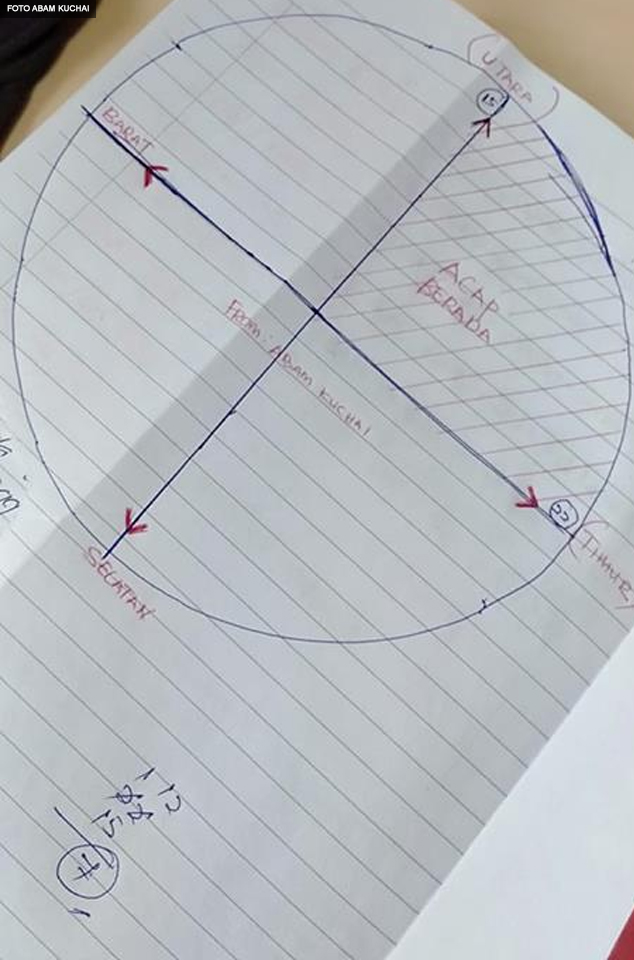 FOTO ABAM KUCHAI
(UTARA)
15
BARAT
ACAP
BERADA
FROM: ABAM KUCHAI
22
(TIMUR)
SELATAN
12
22
15